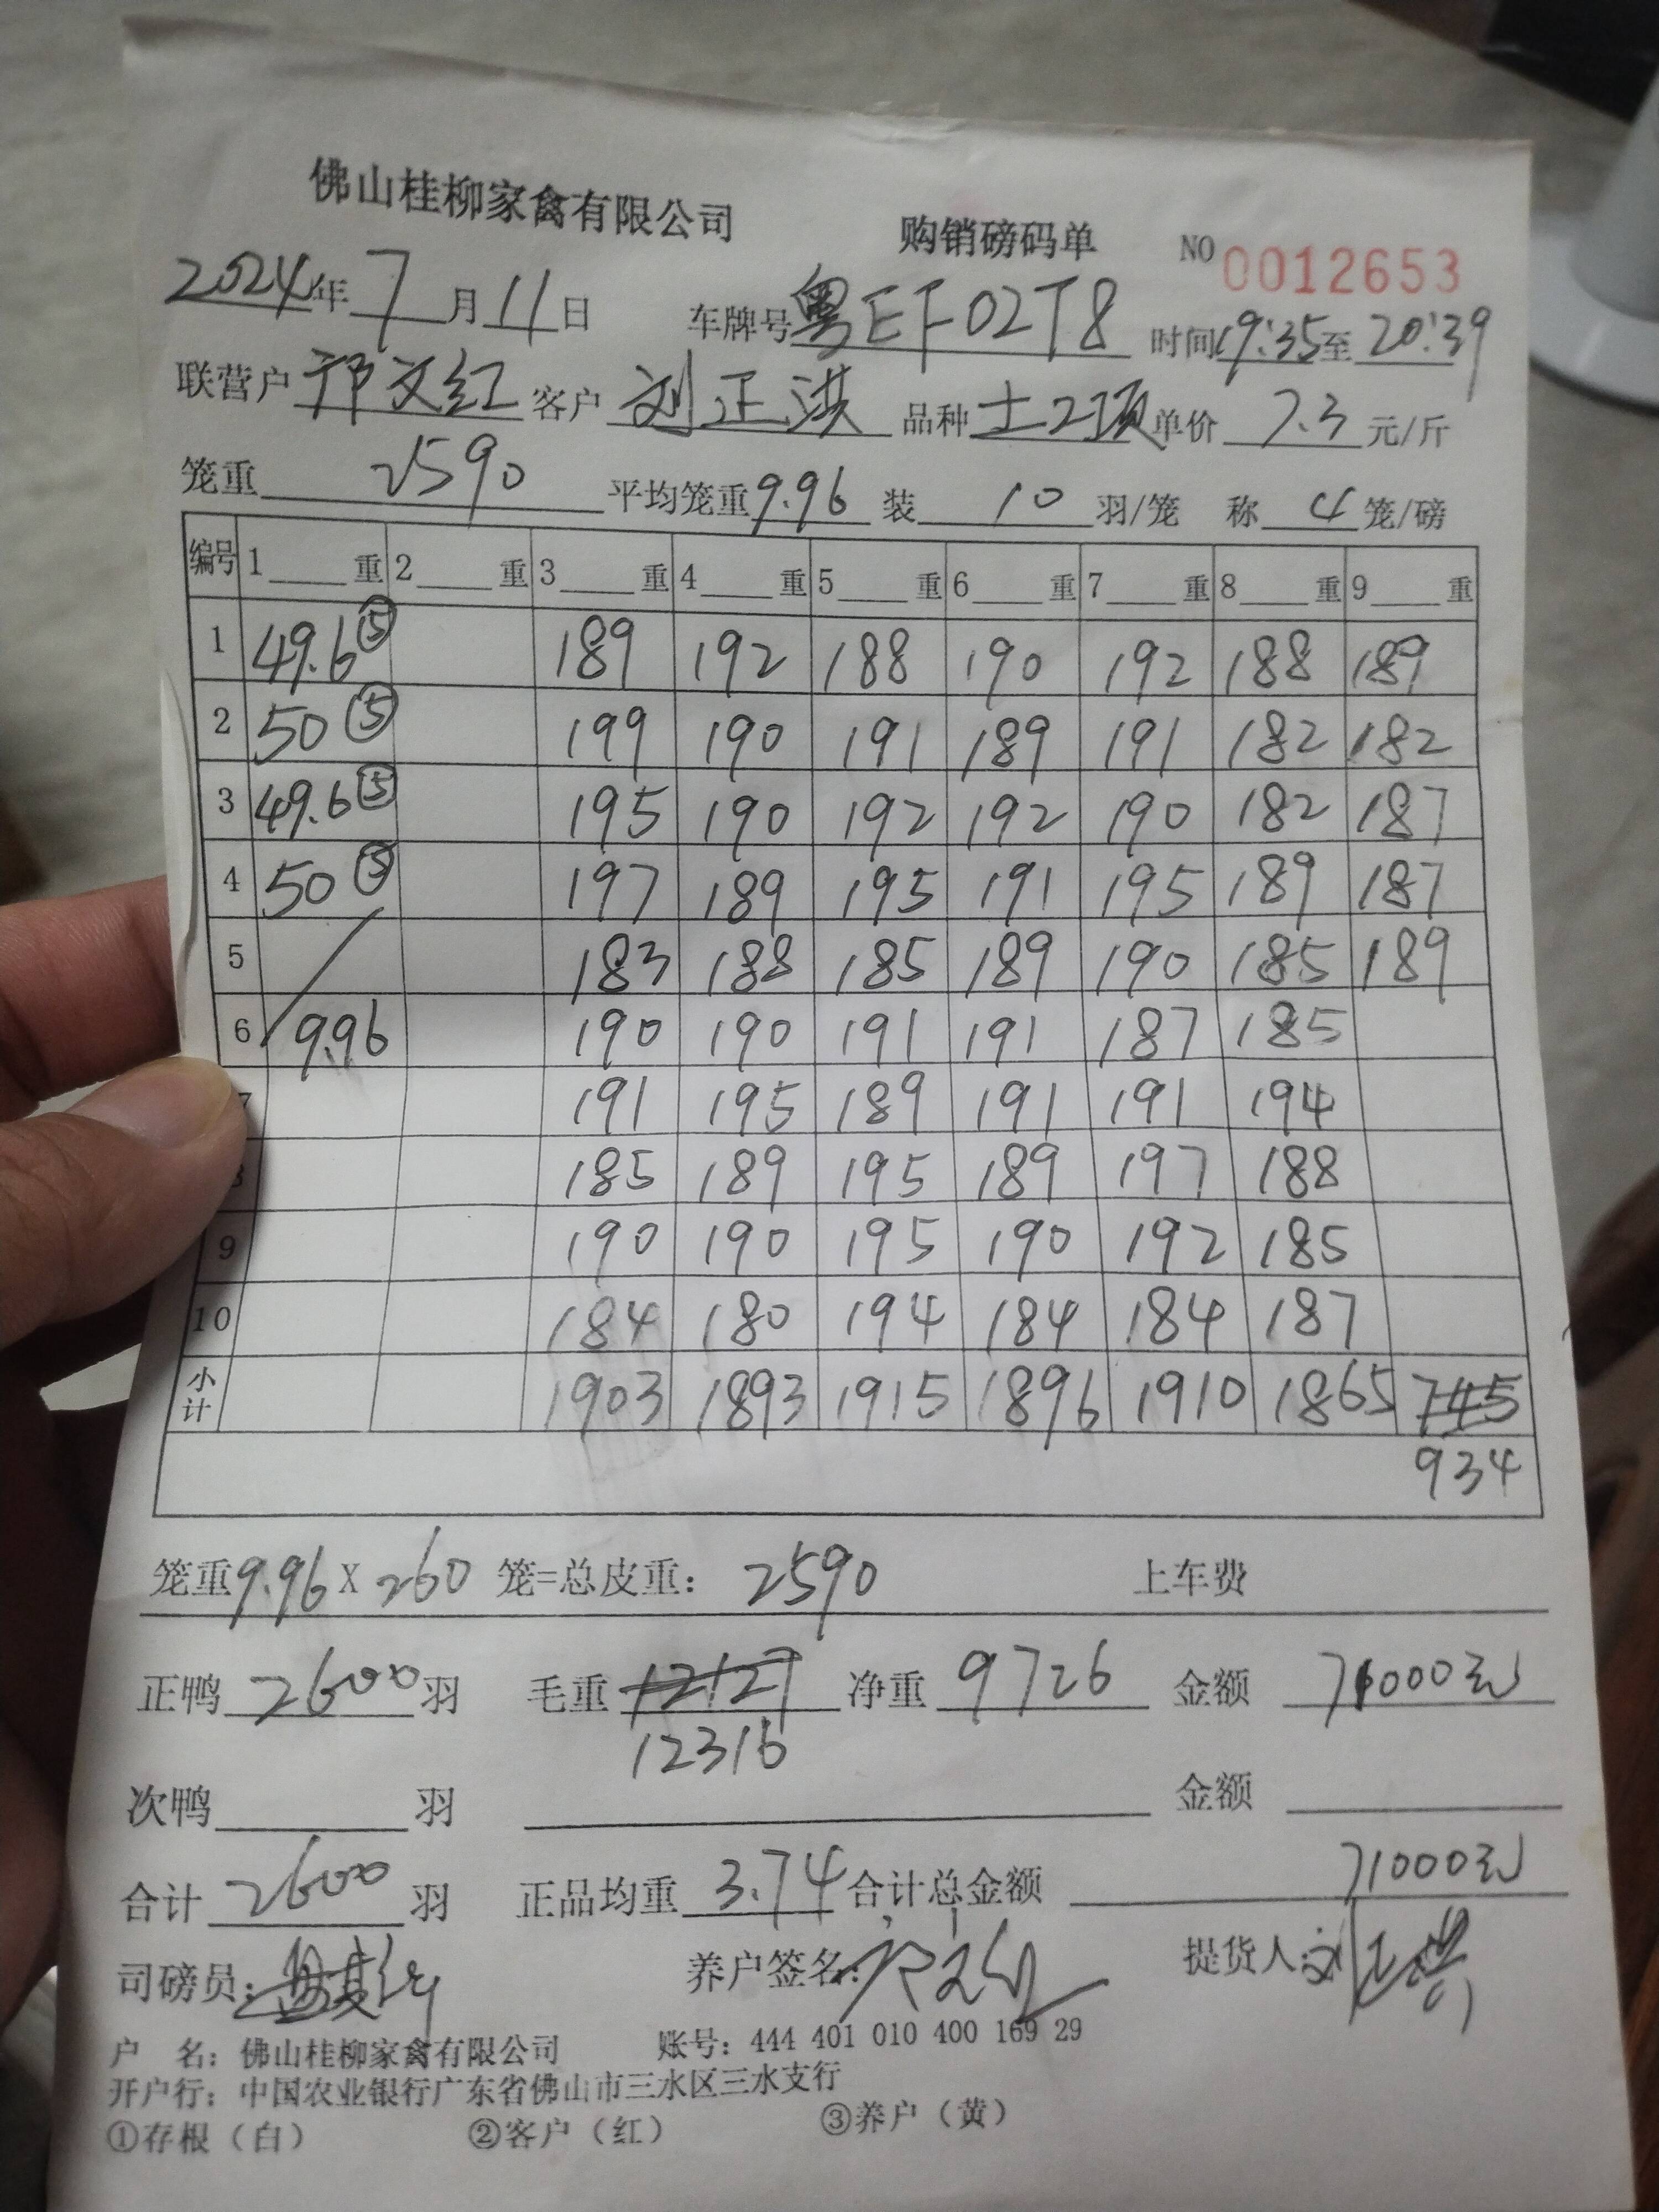 佛山桂柳家禽有限公司 购销磅码单 NO 0012653
2024年7月11日 车牌号粤EF02T8 时间19:35至20:39
联营户邝文红 客户 刘正洪 品种 土2项 单价 7.3 元/斤
笼重 2590 平均笼重9.96 装 10 羽/笼 称 4 笼/磅
编号 1____重 2____重 3____重 4____重 5____重 6____重 7____重 8____重 9____重
1 49.6⑤ 189 192 188 190 192 188 189
2 50⑤ 199 190 191 189 191 182 182
3 49.6⑤ 195 190 192 192 190 182 187
4 50⑤ 197 189 195 191 195 189 187
5 183 188 185 189 190 185 189
6 9.96 190 190 191 191 187 185
7 191 195 189 191 191 194
8 185 189 195 189 197 188
9 190 190 195 190 192 185
10 184 180 194 184 184 187
小计 1903 1893 1915 1896 1910 1865 745
934
笼重9.96 X 260 笼=总皮重: 2590 上车费
正鸭 2600 羽 毛重 12127 净重 9726 金额 71000元
12316
次鸭____羽 金额
合计 2600 羽 正品均重 3.74 合计总金额 71000元
司磅员: 养户签名: 提货人:刘正洪
户 名: 佛山桂柳家禽有限公司 账号: 444 401 010 400 169 29
开户行: 中国农业银行广东省佛山市三水区三水支行
①存根（白） ②客户（红） ③养户（黄）